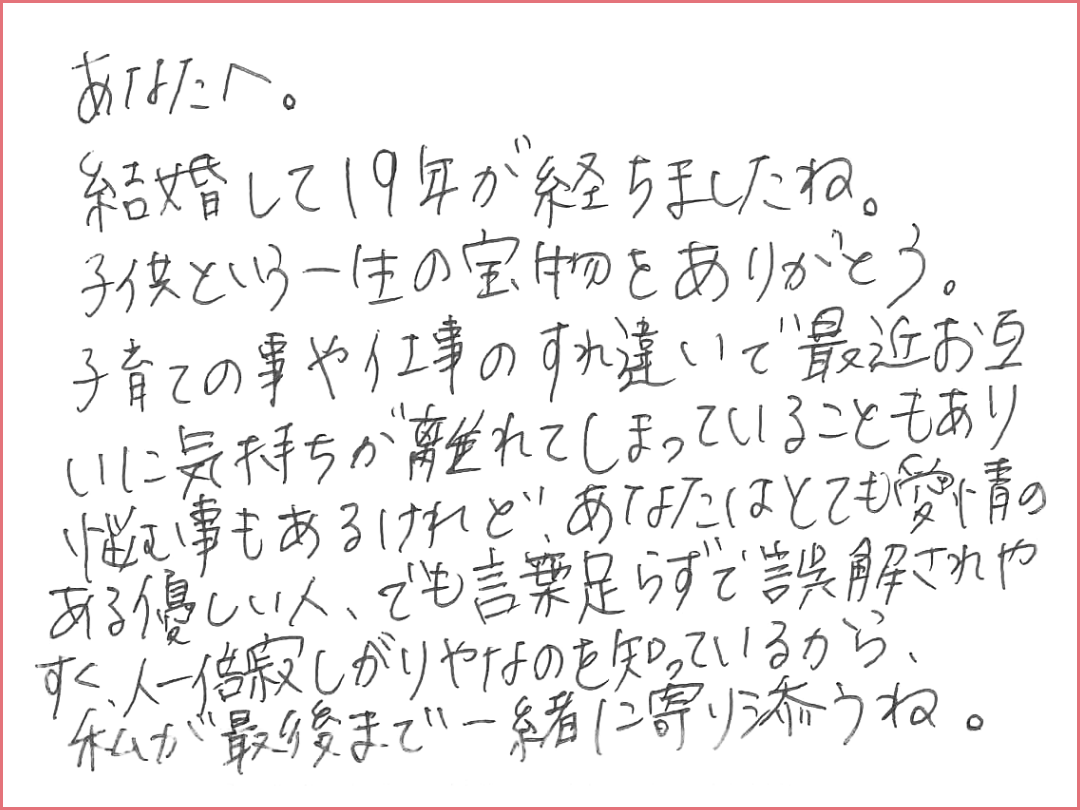 あなたへ。
結婚して19年が経ちましたね。
子供という一生の宝物をありがとう。
子育ての事や仕事のすれ違いで最近お互
いに気持ちが離れてしまっていることもあり
悩む事もあるけれど、あなたはとても愛情の
ある優しい人、でも言葉足らずで誤解されや
すく、人一倍寂しがりやなのを知っているから、
私が最後まで一緒に寄り添うね。